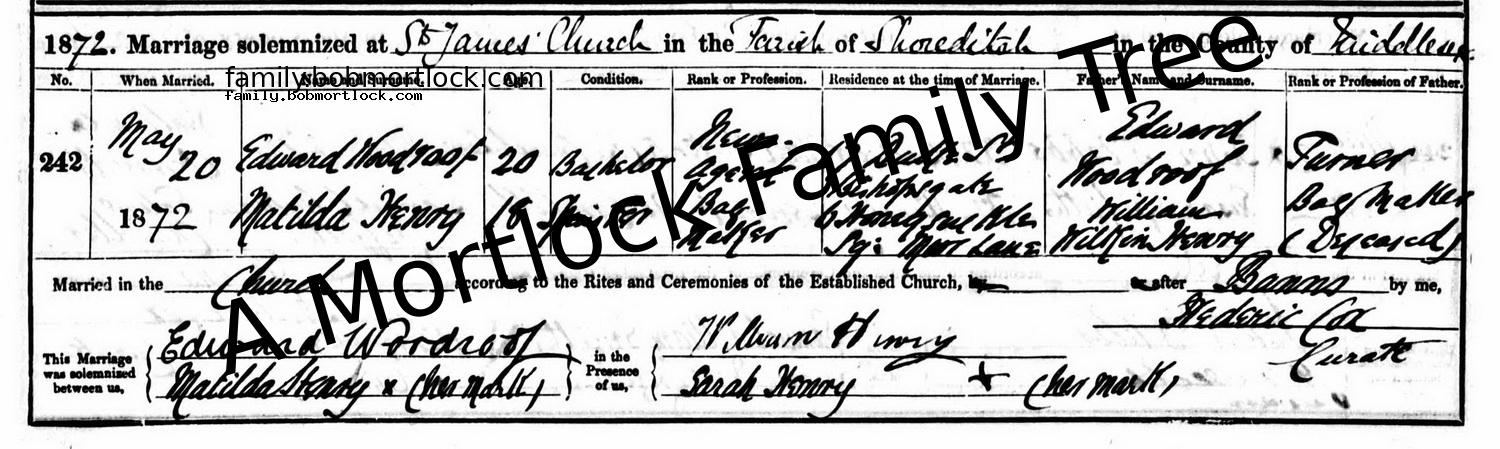 1872. Marriage solemnized at St James' Church in the Parish of Shoreditch in the County of Middlesex
No. When Married. Name and Surname. Age Condition. Rank or Profession. Residence at the time of Marriage. Father's Name and Surname. Rank or Profession of Father.
familybobmortlock.com
family.bobmortlock.com
242 May 20 1872 Edward Woodroof 20 Bachelor News-agent Bishopsgate Edward Woodroof Turner
Matilda Henry 18 Spinster Bag Maker William Wilkin Henry Bag Maker (Deceased)
Married in the Church according to the Rites and Ceremonies of the Established Church, by or after Banns by me,
Frederic Cox
Curate
This Marriage was solemnized between us,
Edward Woodroof
Matilda Henry x (her mark)
in the Presence of us,
William Henry
Sarah Henry + (her mark)
A Mortlock Family Tree